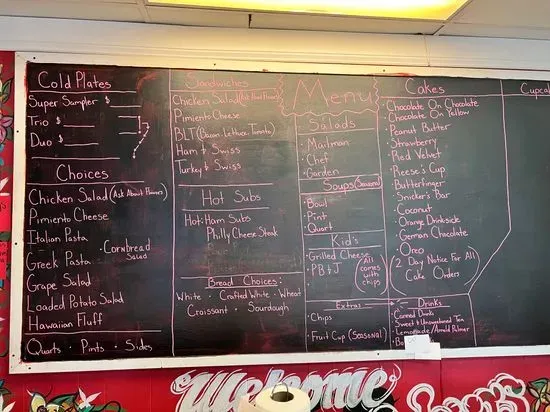 Menu
Cold Plates
Super Sampler $
Trio $
Duo $
Choices
Chicken Salad (Ask About Flavors)
Pimiento Cheese
Italian Pasta
Cornbread Salad
Greek Pasta
Grape Salad
Loaded Potato Salad
Hawaiian Fluff
Quarts · Pints · Sides
Sandwiches
Chicken Salad
Pimiento Cheese
BLT (Bacon-Lettuce-Tomato)
Ham & Swiss
Turkey & Swiss
Hot Subs
Hot: Ham Subs
Philly Cheese Steak
Bread Choices:
White · Crafted White · Wheat
Croissant · Sourdough
Salads
· Mailman
· Chef
· Garden
Soups (Seasonal)
· Bowl
· Pint
· Quart
Kid's
· Grilled Cheese
· PB & J
(All comes with chips)
Extras
· Chips
· Fruit Cup (Seasonal)
Cakes
· Chocolate On Chocolate
· Chocolate On Yellow
· Peanut Butter
· Strawberry
· Red Velvet
· Reese's Cup
· Butterfinger
· Snicker's Bar
· Coconut
· Orange Dreamsicle
· German Chocolate
· Oreo
(2 Day Notice For All Cake Orders)
Drinks
· Canned Drinks
· Sweet & Unsweetened Tea
· Lemonade/Arnold Palmer
Cupca
Welcome